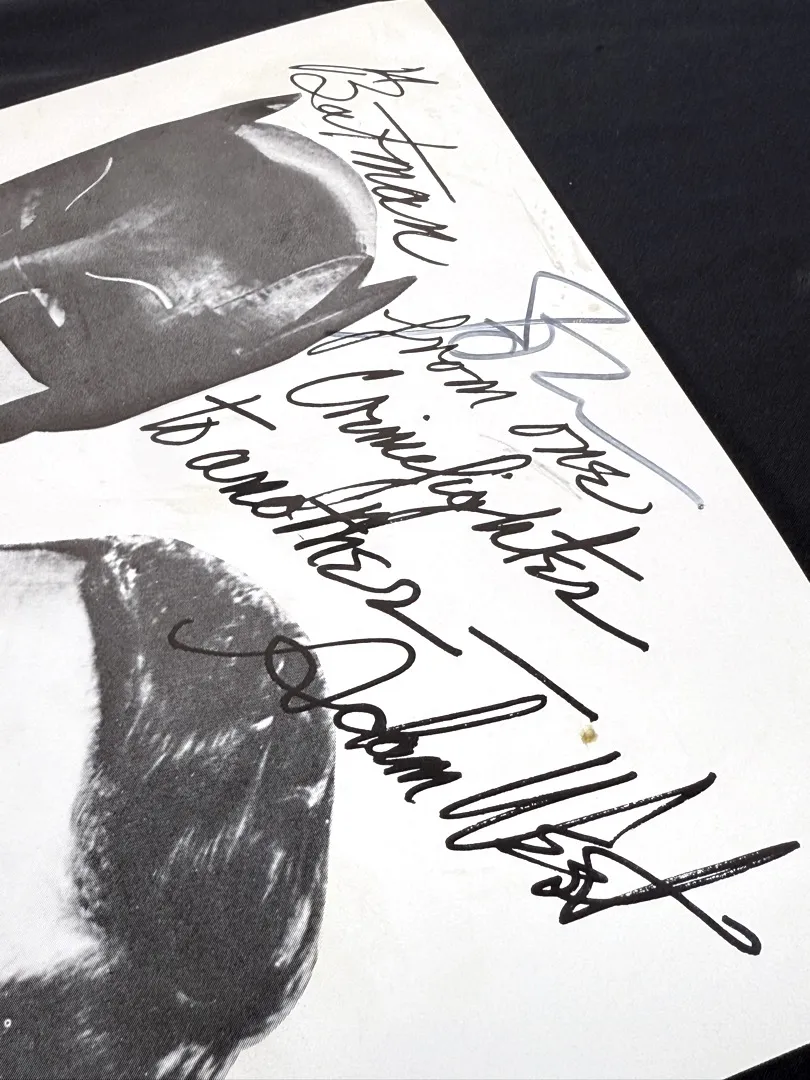 "Batman"
from one
Crimefighter
to another
Adam West